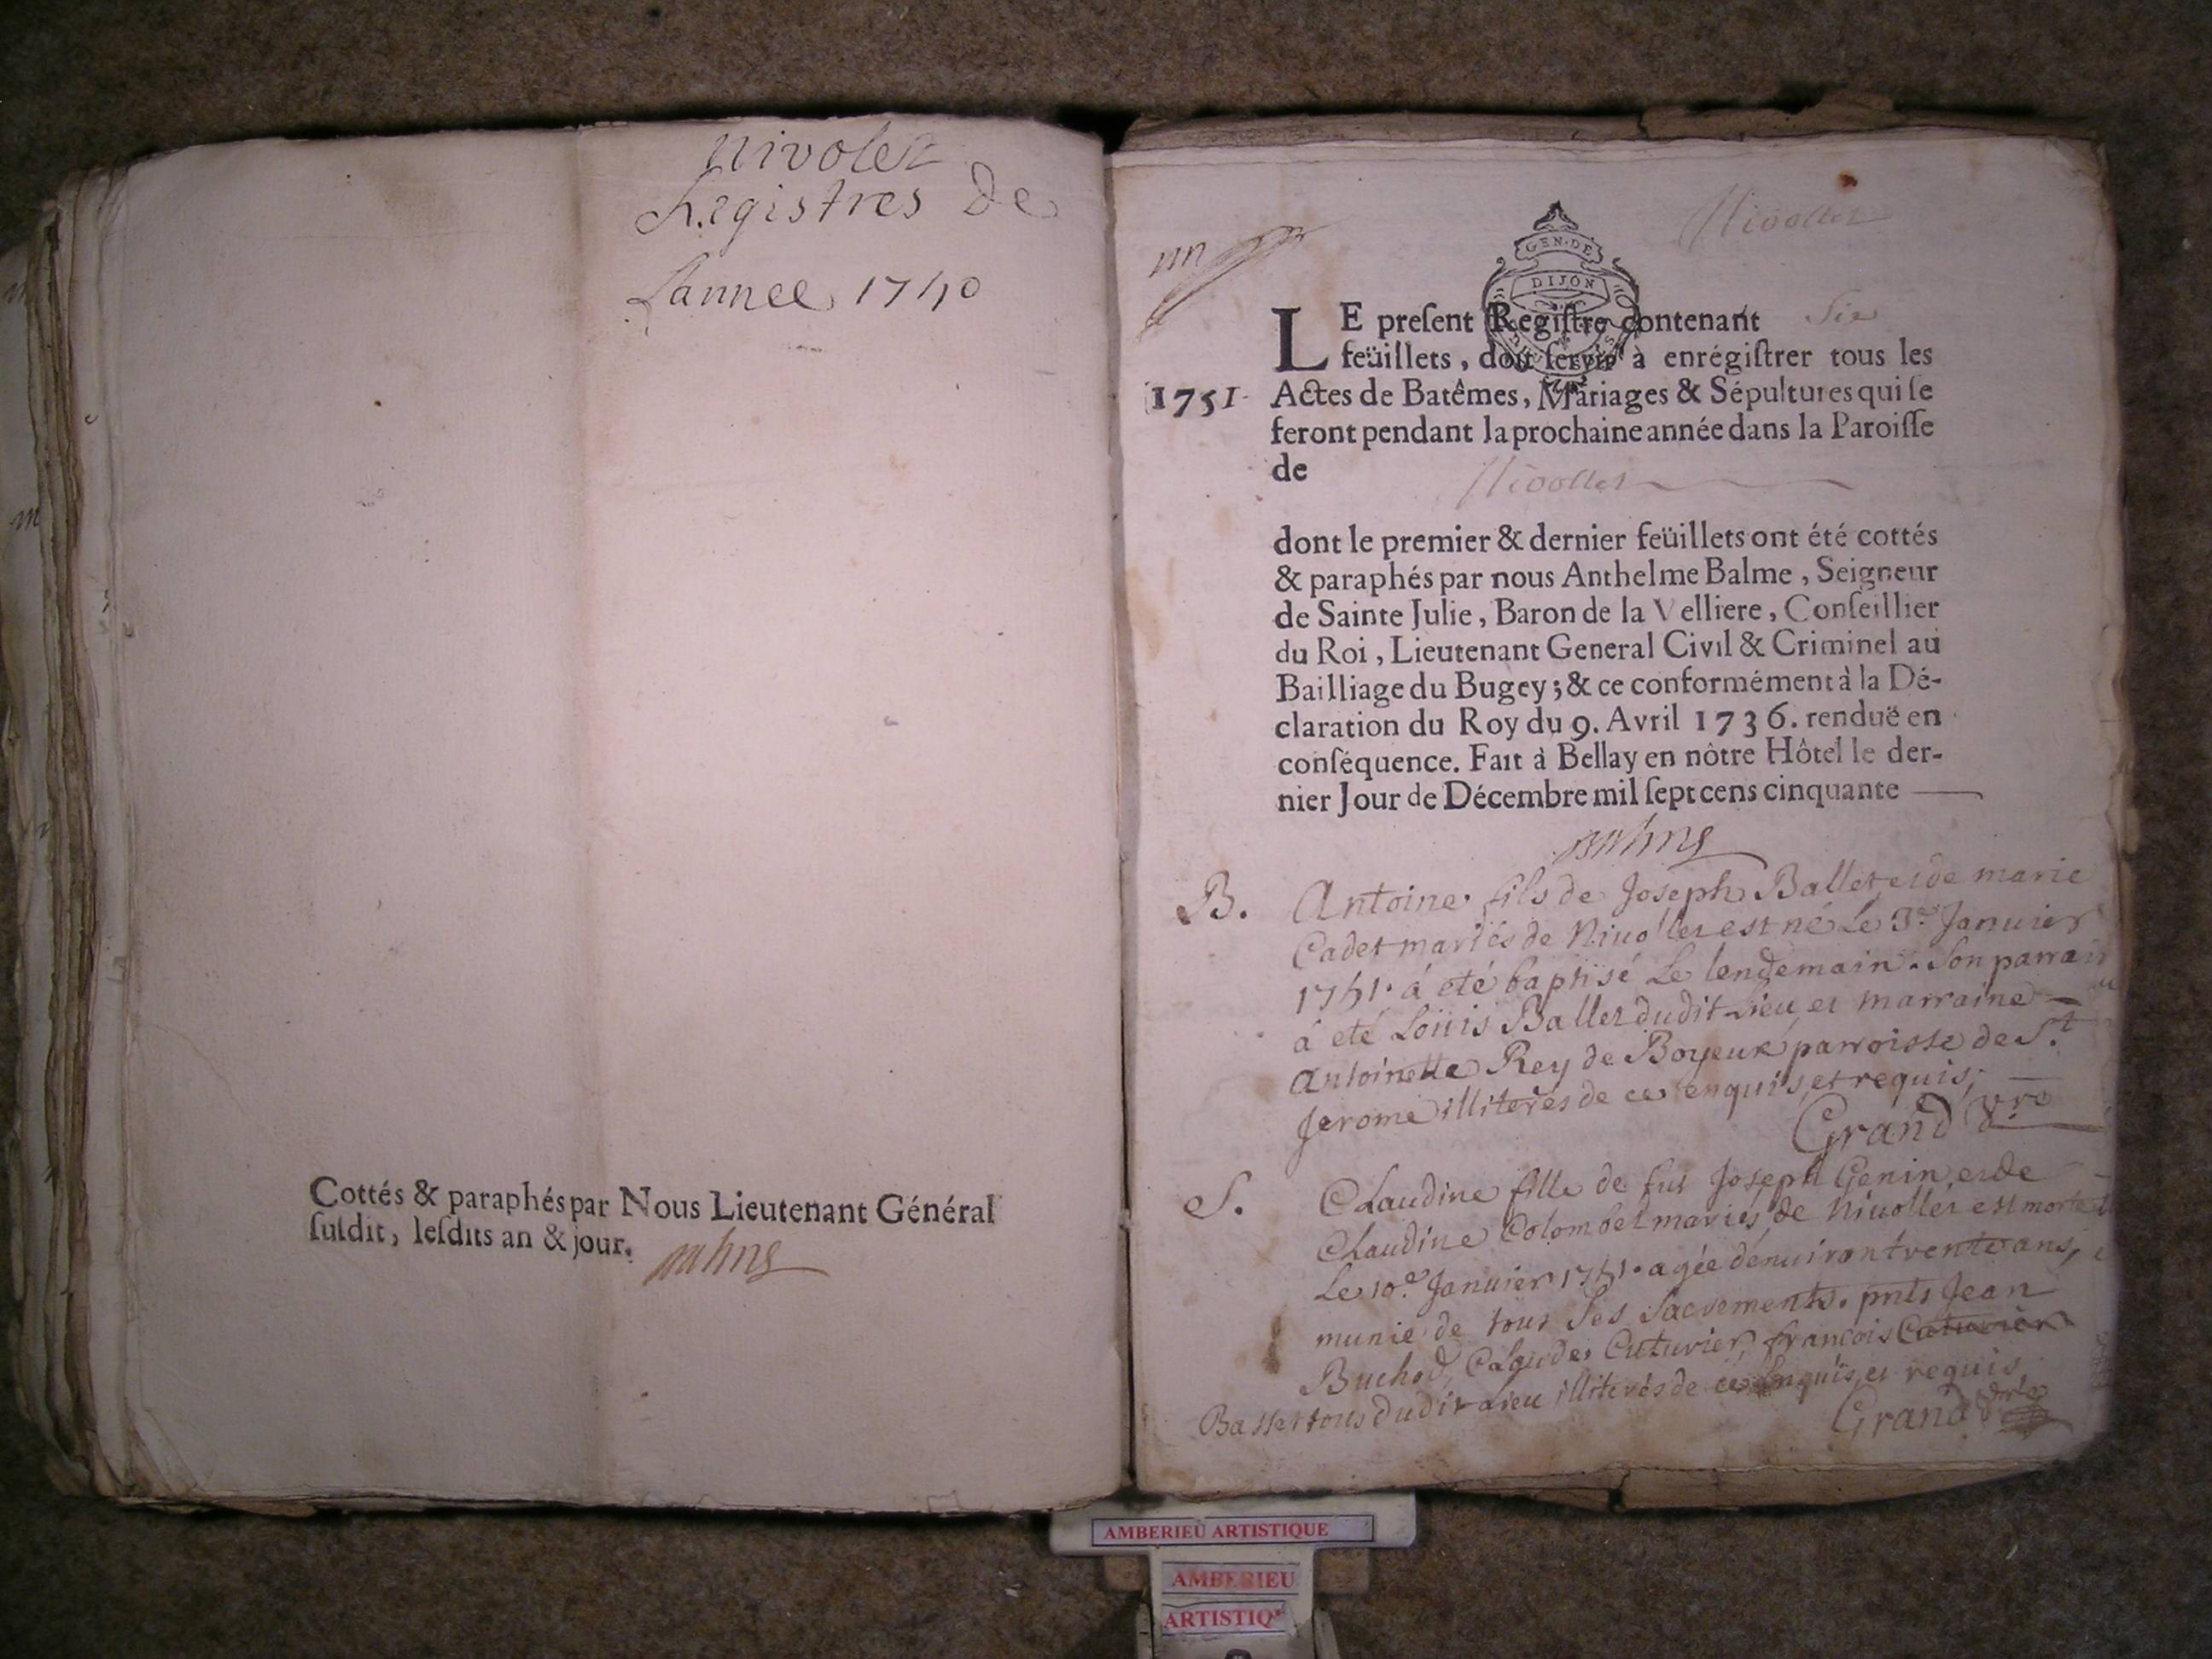 Nivolet
Registres de
Lannee 1750
Cottés & paraphés par Nous Lieutenant Général
ſuſdit, leſdits an & jour.
Nivollet
GEN. DE
DIJON
LE preſent Regiſtre contenant Six
feüillets, doit ſervir à enrégiſtrer tous les
1751. Actes de Batêmes, Mariages & Sépultures qui ſe
feront pendant la prochaine année dans la Paroiſſe
de Nivollet
dont le premier & dernier feüillets ont été cottés
& paraphés par nous Anthelme Balme, Seigneur
de Sainte Julie, Baron de la Velliere, Conſeillier
du Roi, Lieutenant General Civil & Criminel au
Bailliage du Bugey; & ce conformément à la Dé-
claration du Roy du 9. Avril 1736. renduë en
conſéquence. Fait à Bellay en nôtre Hôtel le der-
nier Jour de Décembre mil ſept cens cinquante
B. Antoine fils de Joseph Ballet et de marie
Cadet mariés de Nivollet est né Le 3e Janvier
1751. á eté baptisé Le lendemain. Son parrain
á eté Loüis Ballet dudit Lieu et marraine
Antoinette Rey de Boyeux parroisse de St
Jerome illiterés de ce enquis et requis;
Grand vre
S. Claudine fille de fut Joseph Genin et de
Claudine Colombet mariés de Nivollet est morte
Le 10e Janvier 1751. agée d'environ trente ans,
munie de tous Ses Sacrements. pnts Jean
Buchod, Calaude Cuturier, francois Cuturier
Basset tous dudit Lieu illiterés de ce enquis et requis
Grand vre
AMBERIEU ARTISTIQUE
AMBERIEU
ARTISTIQ